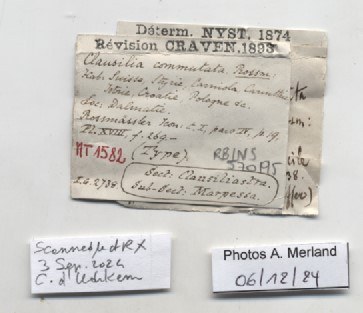 Déterm. NYST, 1874
Révision CRAVEN, 1893
Clausilia commutata Rossm.
Hab. Suisse, Styrie, Carniole, Carinthie
Istrie, Croatie, Pologne &a.
Loc: Dalmatie.
Rossmässler Icon. t. I, pars IV, p. 19,
Pl. XVIII f. 269.—
(Type)
MT 1582
RBINS
Sect: Clausiliastra.
Sub-Sect: Marpessa.
I.G. 2734
Scanned
3 Sep. 2024
C. d'Udekem
Photos A. Merland
06/12/24